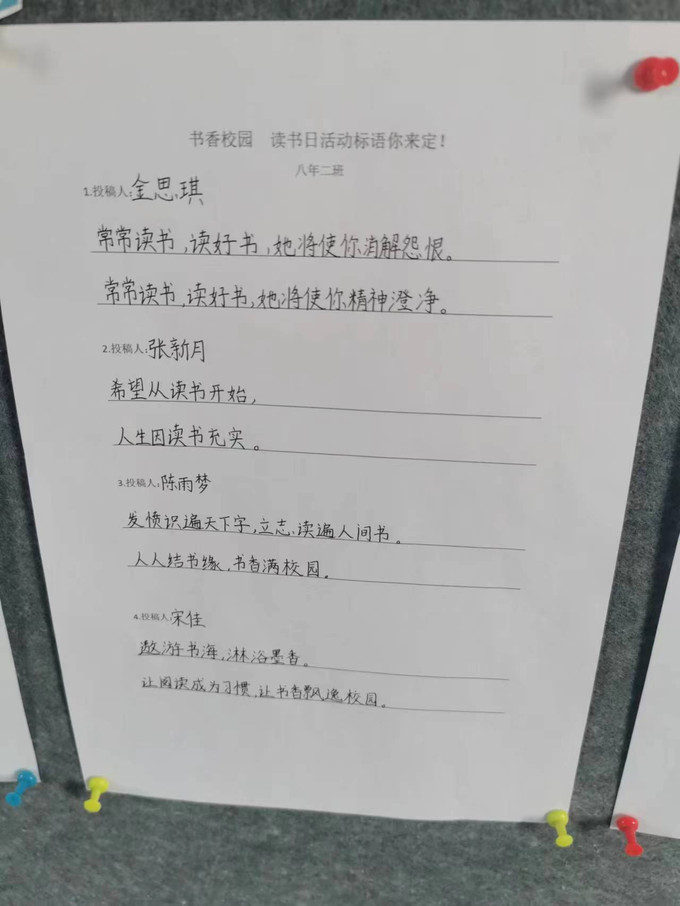 书香校园 读书日活动标语你来定！
八年二班
1.投稿人:金思琪
常常读书,读好书,她将使你消解怨恨。
常常读书,读好书,她将使你精神澄净。
2.投稿人:张新月
希望从读书开始,
人生因读书充实。
3.投稿人:陈雨梦
发愤识遍天下字,立志读遍人间书。
人人结书缘,书香满校园。
4.投稿人:宋佳
遨游书海,淋浴墨香。
让阅读成为习惯,让书香飘逸校园。